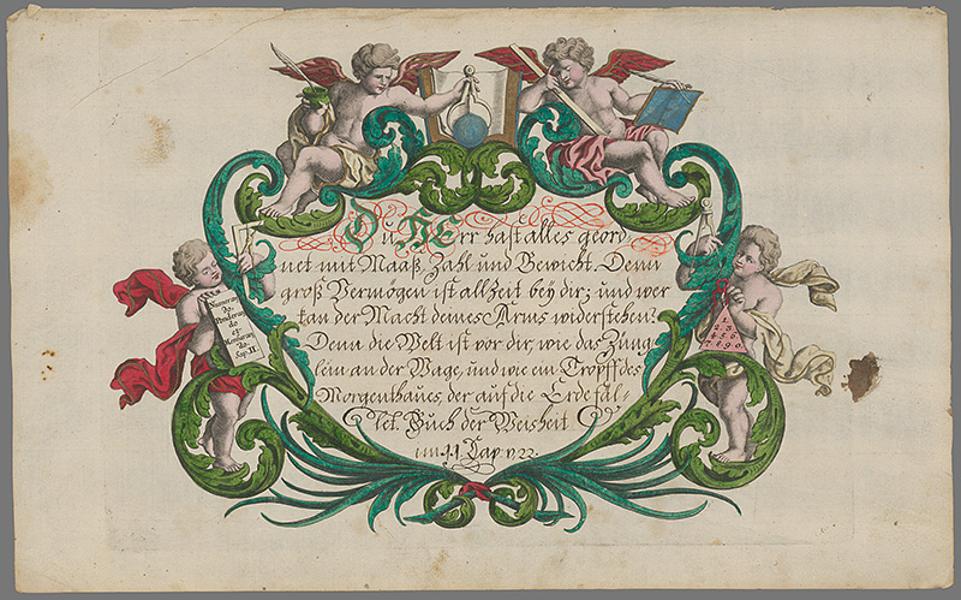 Du HErr hast alles geord-
net mit Maaß, Zahl und Gewicht. Denn
groß Vermögen ist allzeit bey dir; und wer
kan der Macht deines Arms widerstehen?
Denn die Welt ist vor dir, wie das Züng
lein an der Wage, und wie ein Tropff des
Morgenthaues, der auf die Erde fäl-
let. Buch der Weisheit
im 11. Cap. v. 22.
Numeran
do,
Ponderan
do
et
Mensuran
do.
Sap. II.
1.
2. 3.
4. 5. 6.
7. 8. 9. 0.